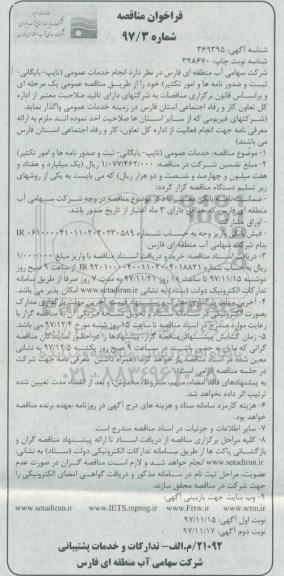 فراخوان مناقصه
شماره ۹۷/۳
شناسه آگهی: ۳۶۹۳۹۵
شناسه نوبت چاپ: ۳۹۸۶۷۰
شرکت سهامی آب منطقه ای فارس در نظر دارد انجام خدمات عمومی (تایپ- بایگانی-
ثبت و صدور نامه ها و امور تکثیر) خود را از طریق مناقصه عمومی یک مرحله ای
و براساس قانون برگزاری مناقصات به شرکتهای دارای تائید صلاحیت معتبر از اداره
کل تعاون کار و رفاه اجتماعی استان فارس در زمینه خدمات عمومی واگذار نماید.
(شرکتهای غیربومی که از سایر استان ها صلاحیت اخذ نموده اند ملزم به ارائه
معرفی نامه جهت انجام فعالیت از اداره کل تعاون، کار و رفاه اجتماعی استان فارس
می باشند)
۱- موضوع مناقصه: خدمات عمومی (تایپ- بایگانی- ثبت و صدور نامه ها و امور تکثیر)
۲- مبلغ تضمین شرکت در مناقصه: ۱/۰۷۷/۴۶۲/۰۰۰ ریال (یک میلیارد و هفتاد و
هفت میلیون و چهارصد و شصت و دو هزار ریال) که می بایست به یکی از روشهای
زیر تسلیم دستگاه مناقصه گزار گردد:
- ضمانت نامه بانکی با ذکر موضوع مناقصه در وجه شرکت سهامی آب
منطقه ای فارس که حداقل دارای ۳ ماه اعتبار از تاریخ صدور باشد.
- اوراق
- فیش بانکی واریز وجه به حساب شماره
بنام شرکت سهامی آب منطقه ای فارس.
۳- دریافت اسناد مناقصه: خرید و دریافت اسناد مناقصه با واریز مبلغ ۱/۰۰۰/۰۰۰
ریال به حساب شماره از ساعت ۹ صبح روز
دوشنبه ۹۷/۱۱/۱۵ تا ساعت ۱۹ روز ۹۷/۱۱/۲۱ به مدت ۷ روز صرفا از طریق سامانه
تدارکات الکترونیکی دولت (ستاد) به نشانی www.setadiran.ir امکان پذیر می باشد.
۴- آخرین مهلت بارگذاری مدارک و پیشنهاد قیمت: آخرین مهلت بارگذاری مدارک
بصورت الکترونیکی در
رعایت موارد مندرج در اسناد مناقصه تا ساعت ۱۵ روز شنبه مورخ ۹۷/۱۲/۴ می باشد.
۵- زمان گشایش پیشنهادات مناقصه گران: پیشنهادها با حضور نمایندگان مناقصه
گرانی که مایل به حضور باشند در ساعت ۹ صبح روز یکشنبه ۹۷/۱۲/۵ به نشانی
معین شده در اسناد مناقصه باز خواهد شد. (همراه داشتن معرفی نامه جهت شرکت
در جلسه مناقصه الزامی است)
به پیشنهادهای فاقد امضاء، مبهم، مشروط، مخدوش و بعد از انقضاء مدت تعیین شده
ترتیب اثر داده نخواهد شد.
۶- هزینه کارمزد سامانه ستاد و هزینه های درج آگهی در روزنامه بعهده برنده مناقصه
خواهد بود.
۷- سایر اطلاعات و جزئیات در اسناد مناقصه مندرج است.
۸- کلیه مراحل برگزاری مناقصه از دریافت اسناد تا ارائه پیشنهاد مناقصه گران و
بازگشائی پاکت ها از طریق سامانه تدارکات الکترونیکی دولت (ستاد) به نشانی:
www.setadiran.ir انجام خواهد شد و لازم است مناقصه گران در صورت عدم
عضویت، مراحل ثبت نام در سامانه مذکور و دریافت گواهی امضای الکترونیکی را
جهت شرکت در مناقصه محقق سازند.
۹- وب سایت جهت بازبینی آگهی:
www.wrm.ir www.Frrw.ir www.IETS.mprog.ir www.setadiran.ir
نوبت اول آگهی: ۹۷/۱۱/۱۵
نوبت دوم آگهی: ۹۷/۱۱/۱۷
۲۱۰۹۲/م.الف- تدارکات و خدمات پشتیبانی
شرکت سهامی آب منطقه ای فارس